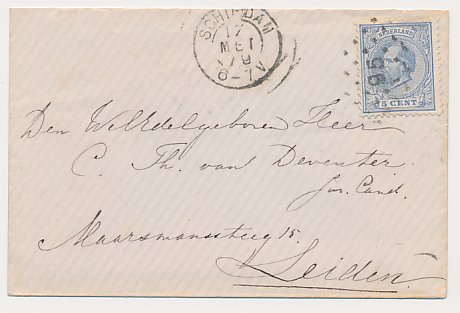 SCHIEDAM
17
MEI
79
6-7V
NEDERLAND
95
5 CENT
Den WelEdelgeboren Heer
C. Th. van Deventer.
Jur. Cand.
Maarsmansteeg 15.
Leiden.